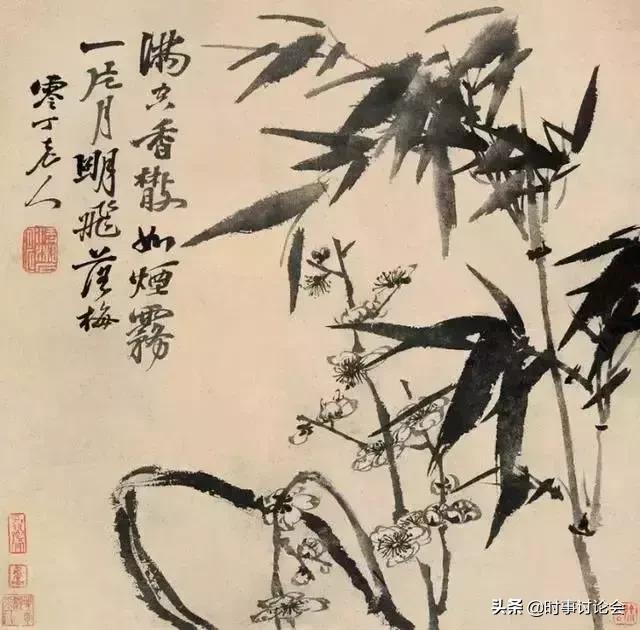 滿空香散如煙霧
一片月明飛落梅
零丁老人
头条 @时事讨论会